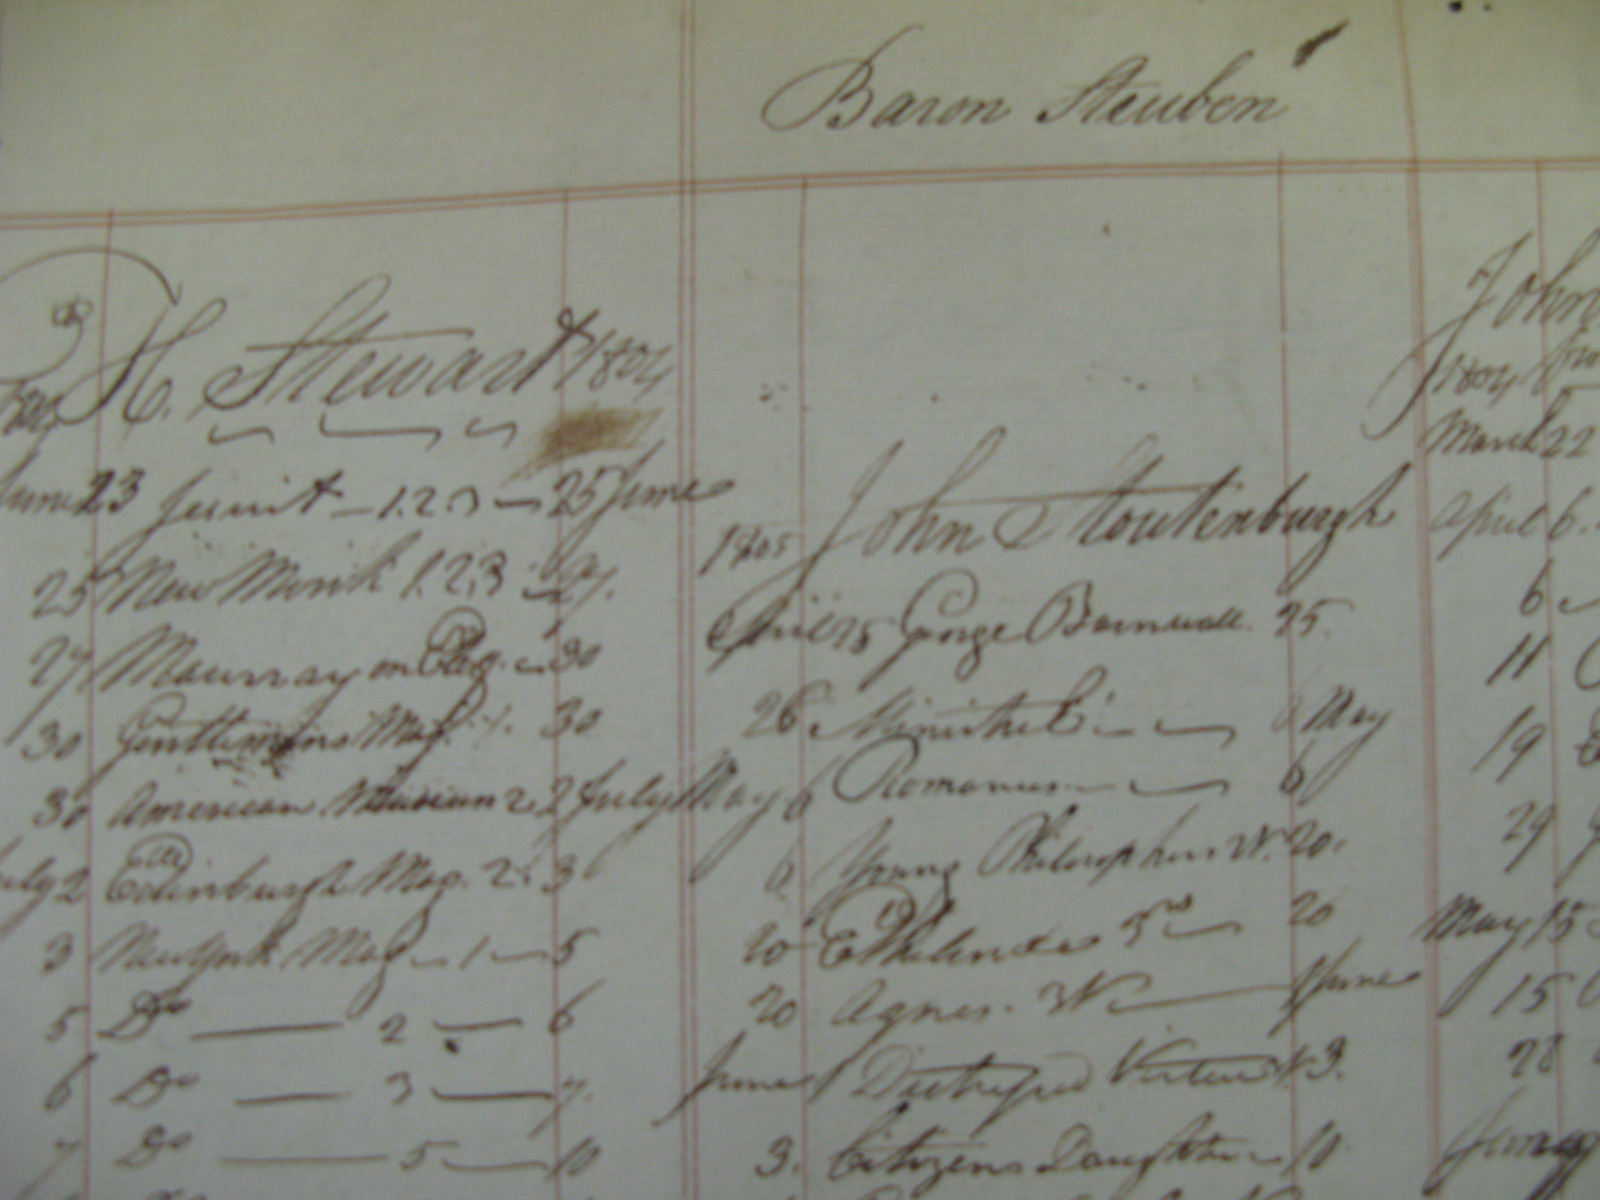 Baron Steuben
H. Stewart 1804
June 23 Jesuit — 1.2.3 — 25 June
25 New Monk 1.2.3 — 27.
27 Mourray on 30
30 Gentlemens Mag. 1. 30
30 American Museum 2 2 July
July 2 Edinburgh Mag. 2. 3
3 New York Mag — 1 — 5
5 Do — 2 — 6
6 Do — 3 — 7.
7 Do — 5 — 10
1805 John Stoutenburgh
April 25 George Barnwell 25.
26 Minstrel — May
May 6 Romances — 6
6 Young Philosopher 20.
20 Ethelinde 20
20 Agnes. 3 V — 1 June
June 1 Distressed Virtue 3.
3. Citizens Daughter — 10
John
1804
March 22
April 6.
6
11
19
29
May 15
15
28